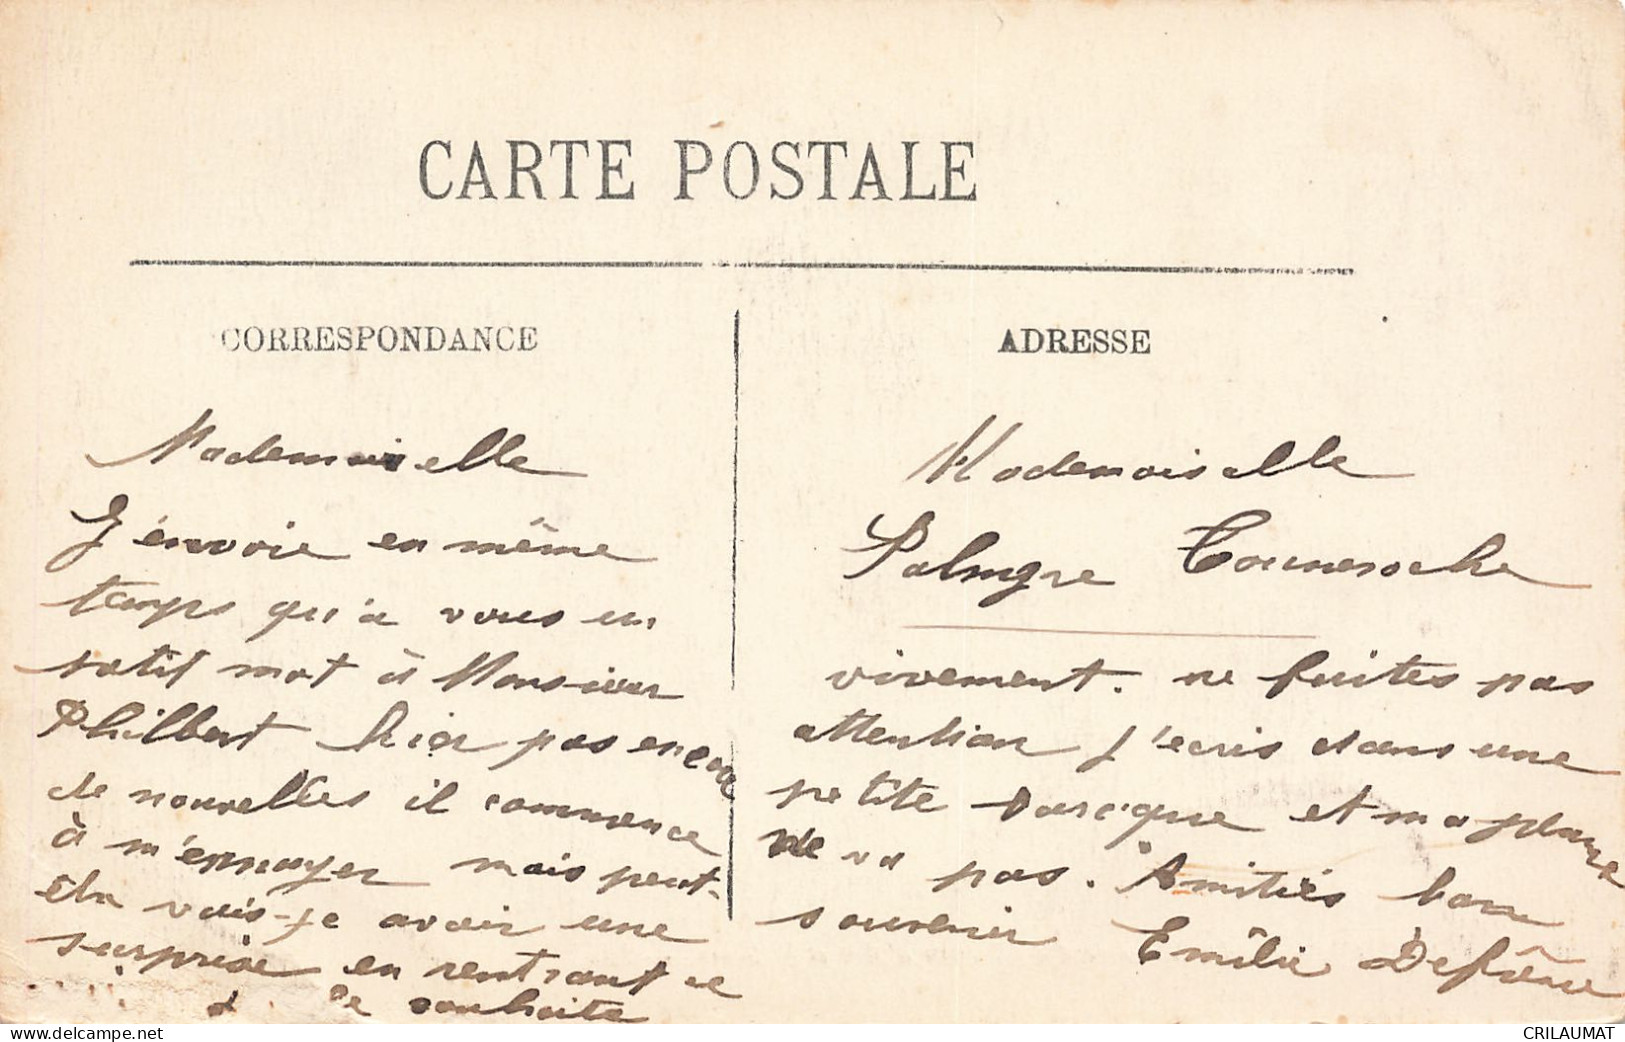 CARTE POSTALE
CORRESPONDANCE
Mademoiselle
J'envoie en même
temps qu'à vous un
petit mot à Monsieur
Philbert hier pas encore
de nouvelles il commence
à m'ennuyer mais peut-
être vais-je avoir une
surprise en rentrant je
le souhaite
ADRESSE
Mademoiselle
Palmyre Tourneroche
vivement. ne faites pas
attention j'écris dans une
petite baraque et ma plume
ne va pas. Amitiés bon
souvenir Emilie
CRILAUMAT